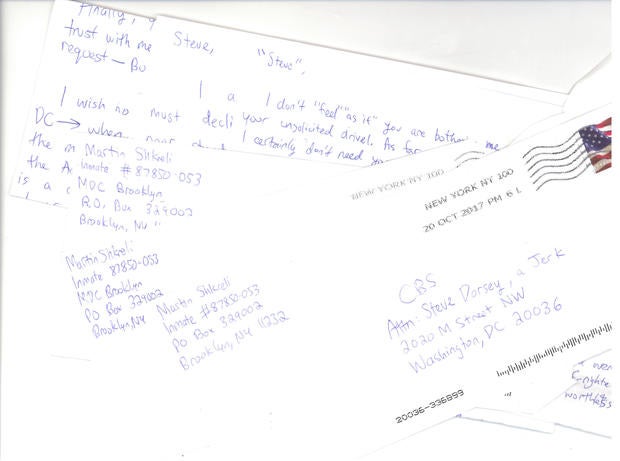 Finally,
trust with me
request — Bu
Steve,
"Steve",
I a
I don't "feel" "as if" you are
me
I wish no
must decli
your unsolicited drivel. As far
DC → when
I certainly don't need
the
the A
is a
Martin Shkreli
Inmate # 87850-053
MDC Brooklyn
P.O. Box 329002
Brooklyn, NY
Martin Shkreli
Inmate 87850-053
MDC Brooklyn
PO Box 329002
Brooklyn NY
Martin Shkreli
Inmate #87850-053
PO Box 329002
Brooklyn, NY 11232
NEW YORK NY 100
NEW YORK NY 100
20 OCT 2017 PM 6 L
CBS
Attn: Steve Dorsey, a Jerk
2020 M Street NW
Washington, DC 20036
20036-336899
over
worthless